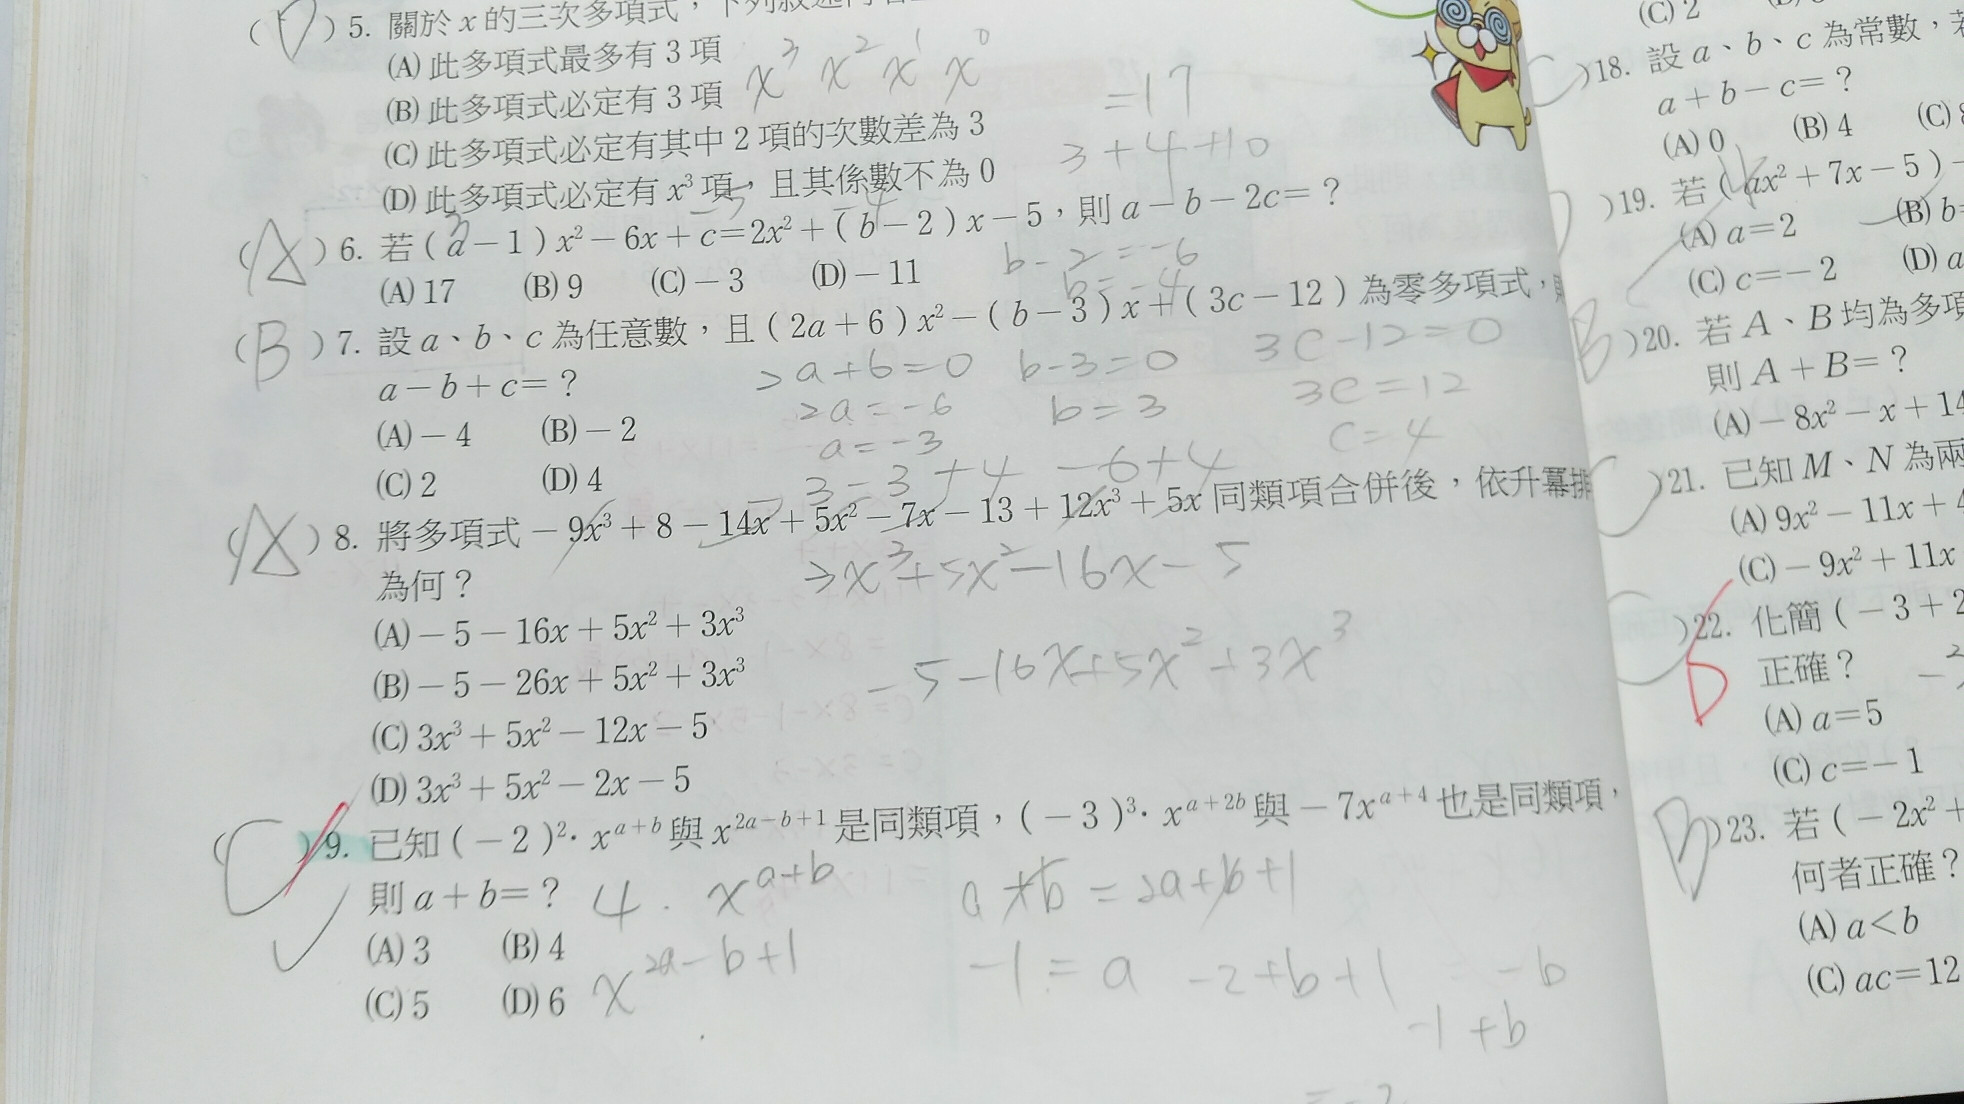 ( D ) 5. 關於 x 的三次多項式，下列敘述
(A) 此多項式最多有 3 項
(B) 此多項式必定有 3 項
x³ x² x¹ x⁰
(C) 此多項式必定有其中 2 項的次數差為 3
(D) 此多項式必定有 x³ 項，且其係數不為 0
=17
3+4+10
( A ) 6. 若 ( a − 1 ) x² − 6x + c = 2x² + ( b − 2 ) x − 5，則 a − b − 2c = ?
3 -5 -4
(A) 17 (B) 9 (C) − 3 (D) − 11
b-2=-6
b=-4
( B ) 7. 設 a、b、c 為任意數，且 ( 2a + 6 ) x² − ( b − 3 ) x + ( 3c − 12 ) 為零多項式，
a − b + c = ?
(A) − 4 (B) − 2
(C) 2 (D) 4
2a+6=0 b-3=0 3c-12=0
2a=-6 b=3 3c=12
a=-3 c=4
-3-3+4 -6+4
( A ) 8. 將多項式 − 9x³ + 8 − 14x + 5x² − 7x − 13 + 12x³ + 5x 同類項合併後，依升冪排
為何？
3x³+5x²-16x-5
(A) − 5 − 16x + 5x² + 3x³
(B) − 5 − 26x + 5x² + 3x³
-5-16x+5x²+3x³
(C) 3x³ + 5x² − 12x − 5
(D) 3x³ + 5x² − 2x − 5
( C ) 9. 已知 ( − 2 )²· xᵃ⁺ᵇ 與 x²ᵃ⁻ᵇ⁺¹ 是同類項，( − 3 )³· xᵃ⁺²ᵇ 與 − 7xᵃ⁺⁴ 也是同類項，
則 a + b = ?
(A) 3 (B) 4
(C) 5 (D) 6
4 · xᵃ⁺ᵇ a+b=2a+b+1
x²ᵃ⁻ᵇ⁺¹ -1=a -2+b+1 = -b
-1+b
(C) 2
) 18. 設 a、b、c 為常數，
a + b − c = ?
(A) 0 (B) 4 (C)
) 19. 若 ( ax² + 7x − 5 ) −
(A) a = 2 (B) b=
(C) c = − 2 (D) a
B ) 20. 若 A、B 均為多項
則 A + B = ?
(A) − 8x² − x + 14
C ) 21. 已知 M、N 為兩
(A) 9x² − 11x + 4
(C) − 9x² + 11x
C ) 22. 化簡 ( − 3 + 2
D
正確？
(A) a = 5
(C) c = − 1
B ) 23. 若 ( − 2x² +
何者正確？
(A) a < b
(C) ac = 12